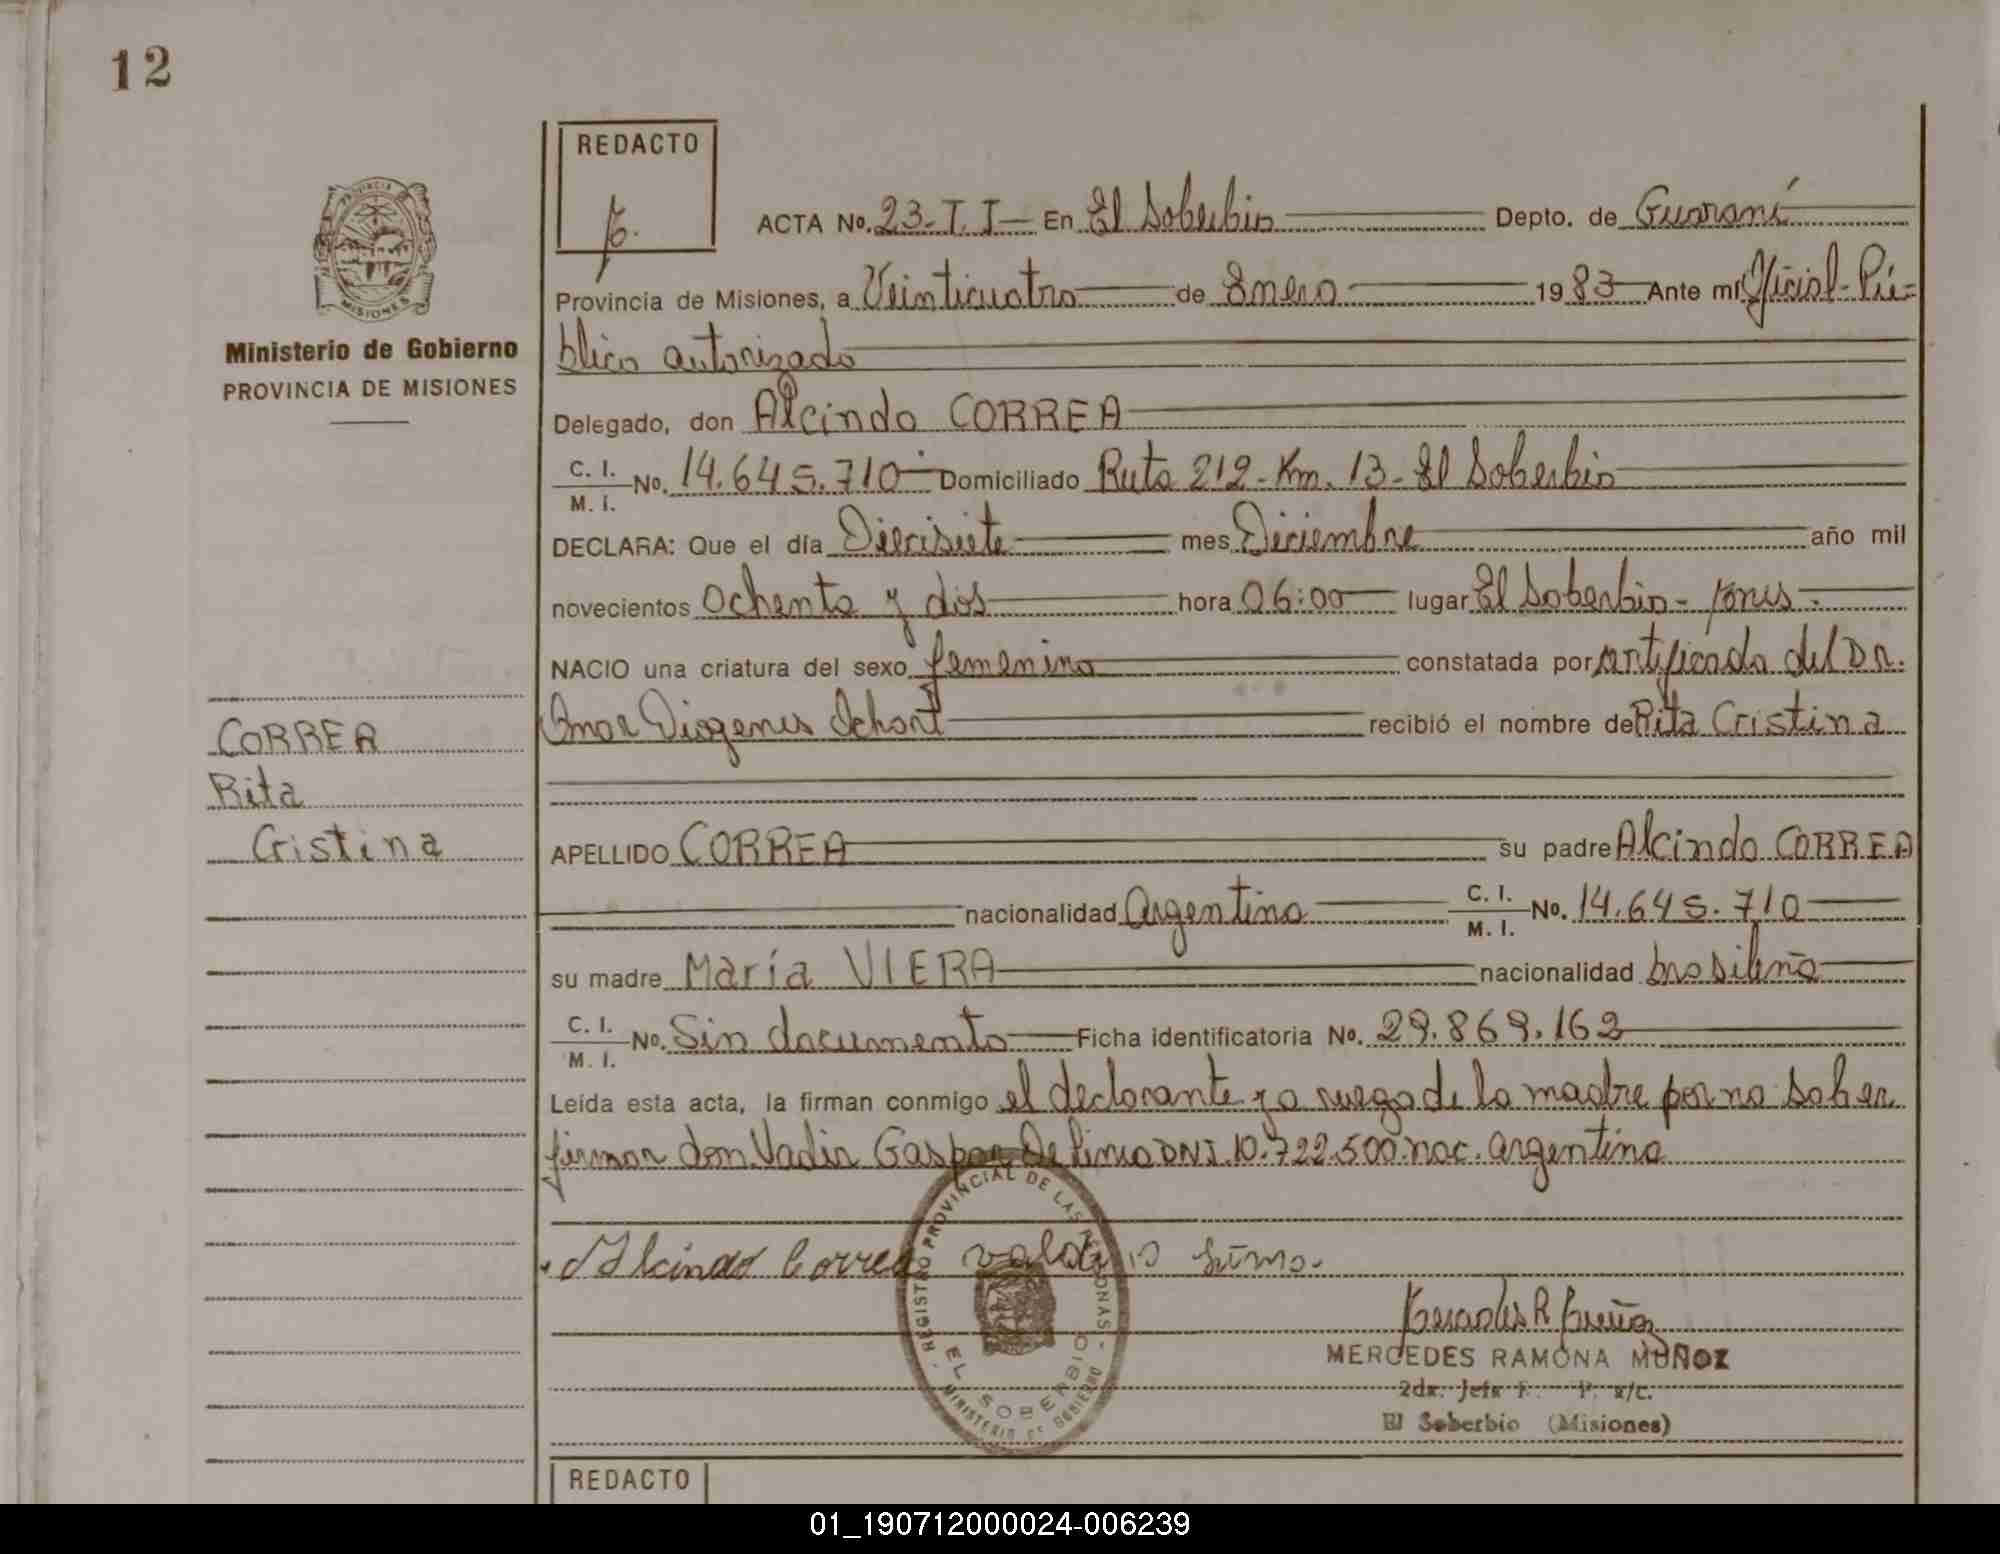 12
REDACTO
ACTA No. 23-T.I- En El Soberbio Depto. de Guaraní
Provincia de Misiones, a Veinticuatro de Enero 1983 Ante mí Oficial-Pú=
blico autorizado
Ministerio de Gobierno
PROVINCIA DE MISIONES
Delegado, don Alcindo CORREA
C. I.
M. I. No. 14.645.710 Domiciliado Ruta 212-Km. 13-El Soberbio
DECLARA: Que el día Diecisiete mes Diciembre año mil
novecientos Ochenta y dos hora 06:00 lugar El Soberbio-
NACIO una criatura del sexo femenino constatada por certificado del Dr.
Omar Diogenes recibió el nombre de Rita Cristina
CORREA
Rita
Cristina
APELLIDO CORREA su padre Alcindo CORREA
nacionalidad Argentina C. I.
M. I. No. 14.645.710
su madre María VIERA nacionalidad brasileña
C. I.
M. I. No. Sin documento Ficha identificatoria No. 29.869.162
Leída esta acta, la firman conmigo el declarante y a ruego de la madre por no saber
firmar don Vadir Gaspar De Lima DNI.10.722.500.nac. argentina
Alcindo Correa
REGISTRO PROVINCIAL DE LAS PERSONAS
EL SOBERBIO
MINISTERIO DE GOBIERNO
MERCEDES RAMONA MUÑOZ
2da. Jefa a/c.
El Soberbio (Misiones)
REDACTO
01_190712000024-006239